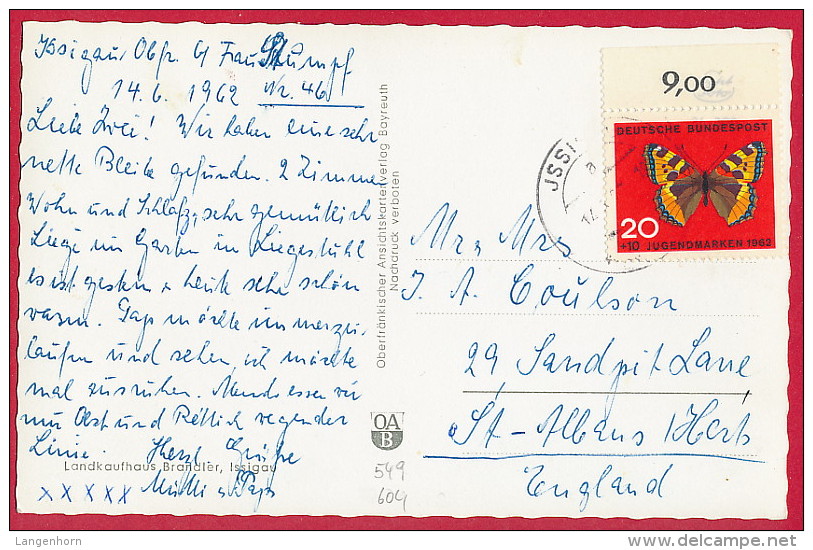 Issigau Obfr. b/ Frau Stumpf
14.6. 1962 Nr. 46
Liebe Zwei! Wir haben eine sehr
nette Bleibe gefunden. 2 Zimmer
Wohn und Schlafz., sehr gemütlich
Liege im Garten in Liegestuhl
es ist gestern + heute sehr schön
warm. Paps möchte immerzu
laufen und sehen, ich möchte
mal ausruhen. Abends essen wir
nur Obst und Rettich wegen der
Linie. Herzl Grüße
Landkaufhaus Brandler, Issigau
x x x x x Mutti u Paps
Oberfränkischer Ansichtskartenverlag Bayreuth
Nachdruck verboten
OA
B
549
604
9,00
DEUTSCHE BUNDESPOST
20
+10 JUGENDMARKEN 1962
Mr & Mrs
J. A. Coulson
29 Sandpit Lane
St-Albans / Herts
England
Langenhorn
www.delcampe.net